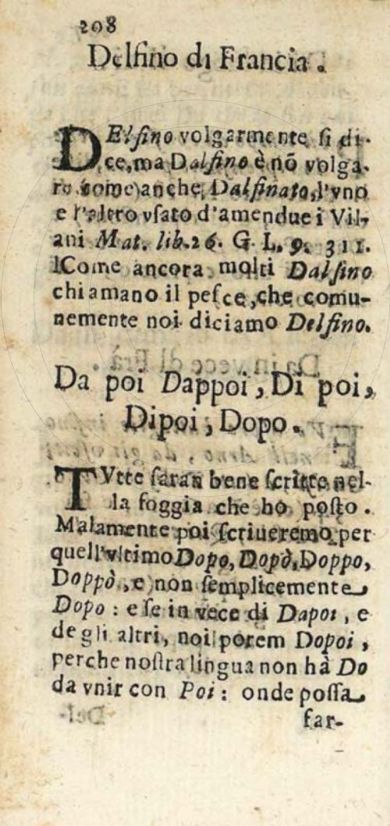 208
Delfino di Francia.
DElfino volgarmente si di-
ce, ma Dalfino è nō volga-
re come anche, Dalfinato, l'vno
e l'altro vsato d'amendue i Vil-
ani Mat. lib. 26. G L. 9. 311.
Come ancora molti Dalfino
chiamano il pesce, che comu-
nemente noi diciamo Delfino.
Da poi Dappoi, Di poi,
Dipoi, Dopo.
TVtte saran bene scritte nel-
la foggia che ho posto.
Malamente poi scriueremo per
quell'vltimo Dopo, Dopò, Doppo,
Doppò, e non semplicemente
Dopo: e se in vece di Dapoi, e
degli altri, noi porem Dopoi,
perche nostra lingua non hà Do
da vnir con Poi: onde possa
far-